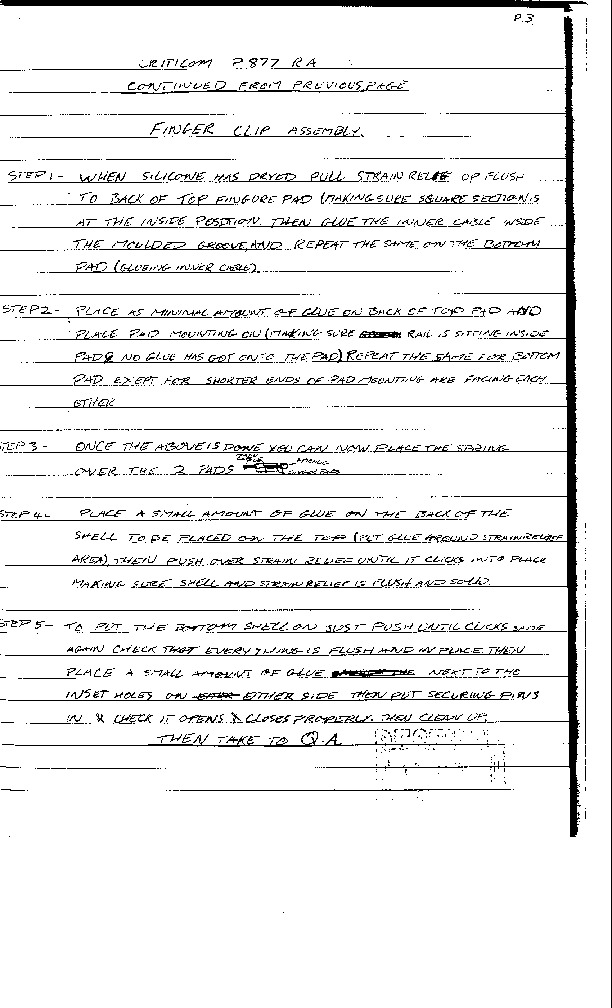 P.3
CRITICOM P.877 RA
CONTINUED FROM PREVIOUS PAGE
FINGER CLIP ASSEMBLY.
STEP 1 - WHEN SILICONE HAS DRYED PULL STRAIN RELIEF UP FLUSH
TO BACK OF TOP FINGURE PAD (MAKING SURE SQUARE SECTION IS
AT THE INSIDE POSITION. THEN GLUE THE INNER CABLE INSIDE
THE MOULDED GROOVE, AND REPEAT THE SAME ON THE BOTTOM
PAD (GLUEING INNER CABLE)
STEP 2 - PLACE AS MINIMAL AMOUNT OF GLUE ON BACK OF TOP PAD AND
PLACE PAD MOUNTING ON (MAKING SURE RAIL IS SITTING INSIDE
PAD & NO GLUE HAS GOT ONTO THE PAD) REPEAT THE SAME FOR BOTTOM
PAD EXEPT FOR SHORTER ENDS OF PAD MOUNTING ARE FACING EACH
OTHER
STEP 3 - ONCE THE ABOVE IS DONE YOU CAN NOW PLACE THE SPRING
OVER THE 2 PADS
STEP 4 - PLACE A SMALL AMOUNT OF GLUE ON THE BACK OF THE
SHELL TO BE PLACED ON THE TOP (PUT GLUE AROUND STRAIN RELIEF
AREA) THEN PUSH OVER STRAIN RELIEF UNTIL IT CLICKS INTO PLACE
MAKING SURE SHELL AND STRAIN RELIEF IS FLUSH AND SOLID.
STEP 5 - TO PUT THE BOTTOM SHELL ON JUST PUSH UNTIL CLICKS
AGAIN CHECK THAT EVERYTHING IS FLUSH AND IN PLACE THEN
PLACE A SMALL AMOUNT OF GLUE NEXT TO THE
INSET HOLES ON EITHER SIDE THEN PUT SECURING PINS
IN & CHECK IT OPENS & CLOSES PROPERLY. THEN CLEAN UP.
THEN TAKE TO Q.A